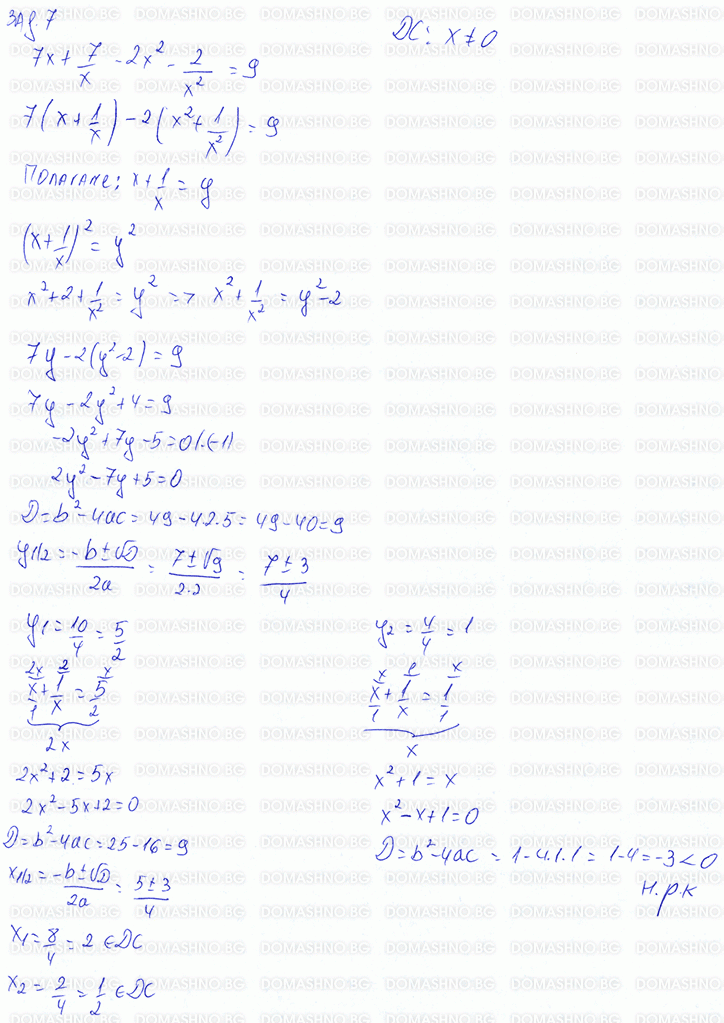 Зад. 7
ДС: x ≠ 0
7x + 7/x - 2x² - 2/x² = 9
7(x + 1/x) - 2(x² + 1/x²) = 9
Полагане: x + 1/x = y
(x + 1/x)² = y²
x² + 2 + 1/x² = y² => x² + 1/x² = y² - 2
7y - 2(y² - 2) = 9
7y - 2y² + 4 = 9
-2y² + 7y - 5 = 0 |.(-1)
2y² - 7y + 5 = 0
D = b² - 4ac = 49 - 4.2.5 = 49 - 40 = 9
y1/2 = (-b ± √D)/2a = (7 ± √9)/2.2 = (7 ± 3)/4
y₁ = 10/4 = 5/2
2x 2 x
x/1 + 1/x = 5/2
2x
2x² + 2 = 5x
2x² - 5x + 2 = 0
D = b² - 4ac = 25 - 16 = 9
x1/2 = (-b ± √D)/2a = (5 ± 3)/4
x₁ = 8/4 = 2 ∈ ДС
x₂ = 2/4 = 1/2 ∈ ДС
y₂ = 4/4 = 1
x 1 x
x/1 + 1/x = 1/1
x
x² + 1 = x
x² - x + 1 = 0
D = b² - 4ac = 1 - 4.1.1 = 1 - 4 = -3 < 0
н.р.к
DOMASHNO.BG